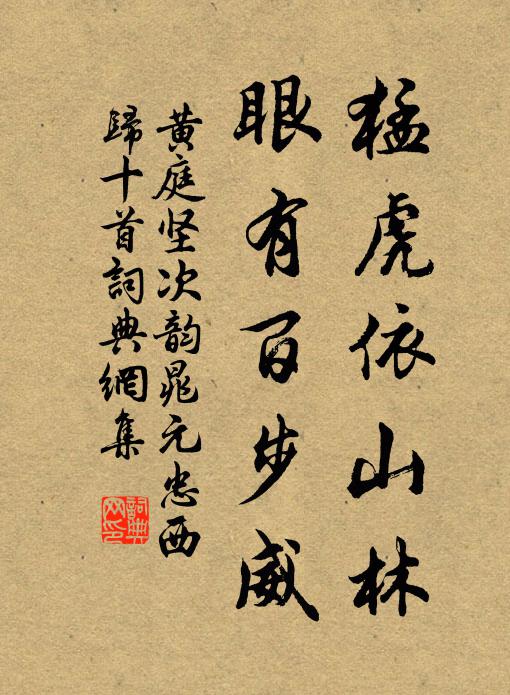 猛虎依山林
眼有百步威
黄庭坚次韵晁元忠西
歸十首詞典網集
詞典網印